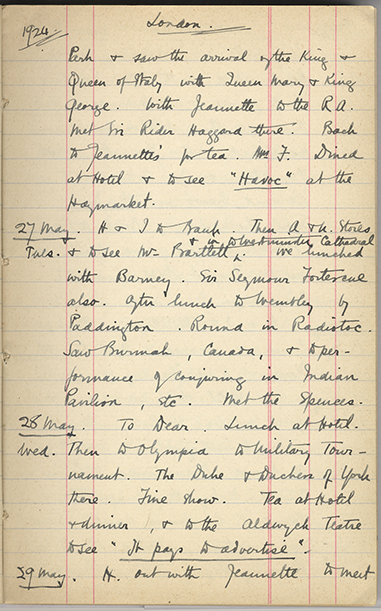 1924 London.
Park & saw the arrival of the King &
Queen of Italy with Queen Mary & King
George. With Jeannette to the R A.
Met Sir Rider Haggard there. Back
to Jeannette's for tea. Mrs F. Dined
at Hotel & to see "Havoc" at the
Haymarket.
27 May. H & I to Bank. Then A & N. Stores
& to Westminster Cathedral
Tues. & to see Mr Bartlett. We lunched
with Barney. Sir Seymour Fortescue
also. After lunch to Wembley by
Paddington. Round in Radiotoc.
Saw Burmah, Canada, & to per-
formance of conjuring in Indian
Pavilion, etc. Met the Spences.
28 May. To Dear. Lunch at Hotel.
Wed. Then to Olympia to Military Tour-
nament. The Duke & Duchess of York
there. Fine show. Tea at Hotel
& dinner, & to the Aldwych Teatre
to see "It pays to advertise".
29 May. H. out with Jeannette to meet